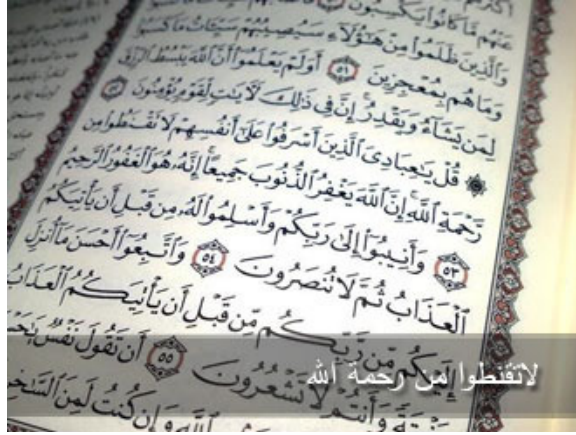 عَنْهُم مَّا كَانُوا۟ يَكْسِبُونَ
وَٱلَّذِينَ ظَلَمُوا۟ مِنْ هَـٰٓؤُلَآءِ سَيُصِيبُهُمْ سَيِّـَٔاتُ مَا كَسَبُوا۟
وَمَا هُم بِمُعْجِزِينَ ٥١ أَوَلَمْ يَعْلَمُوٓا۟ أَنَّ ٱللَّهَ يَبْسُطُ ٱلرِّزْقَ
لِمَن يَشَآءُ وَيَقْدِرُ ۚ إِنَّ فِى ذَٰلِكَ لَـَٔايَـٰتٍ لِّقَوْمٍ يُؤْمِنُونَ ٥٢
۞ قُلْ يَـٰعِبَادِىَ ٱلَّذِينَ أَسْرَفُوا۟ عَلَىٰٓ أَنفُسِهِمْ لَا تَقْنَطُوا۟ مِن
رَّحْمَةِ ٱللَّهِ ۚ إِنَّ ٱللَّهَ يَغْفِرُ ٱلذُّنُوبَ جَمِيعًا ۚ إِنَّهُۥ هُوَ ٱلْغَفُورُ ٱلرَّحِيمُ
٥٣ وَأَنِيبُوٓا۟ إِلَىٰ رَبِّكُمْ وَأَسْلِمُوا۟ لَهُۥ مِن قَبْلِ أَن يَأْتِيَكُمُ
ٱلْعَذَابُ ثُمَّ لَا تُنصَرُونَ ٥٤ وَٱتَّبِعُوٓا۟ أَحْسَنَ مَآ أُنزِلَ
إِلَيْكُم مِّن رَّبِّكُم مِّن قَبْلِ أَن يَأْتِيَكُمُ ٱلْعَذَابُ
بَغْتَةً وَأَنتُمْ لَا تَشْعُرُونَ ٥٥ أَن تَقُولَ نَفْسٌ
ٱللَّهِ وَإِن كُنتُ لَمِنَ
لاتقنطوا من رحمة الله